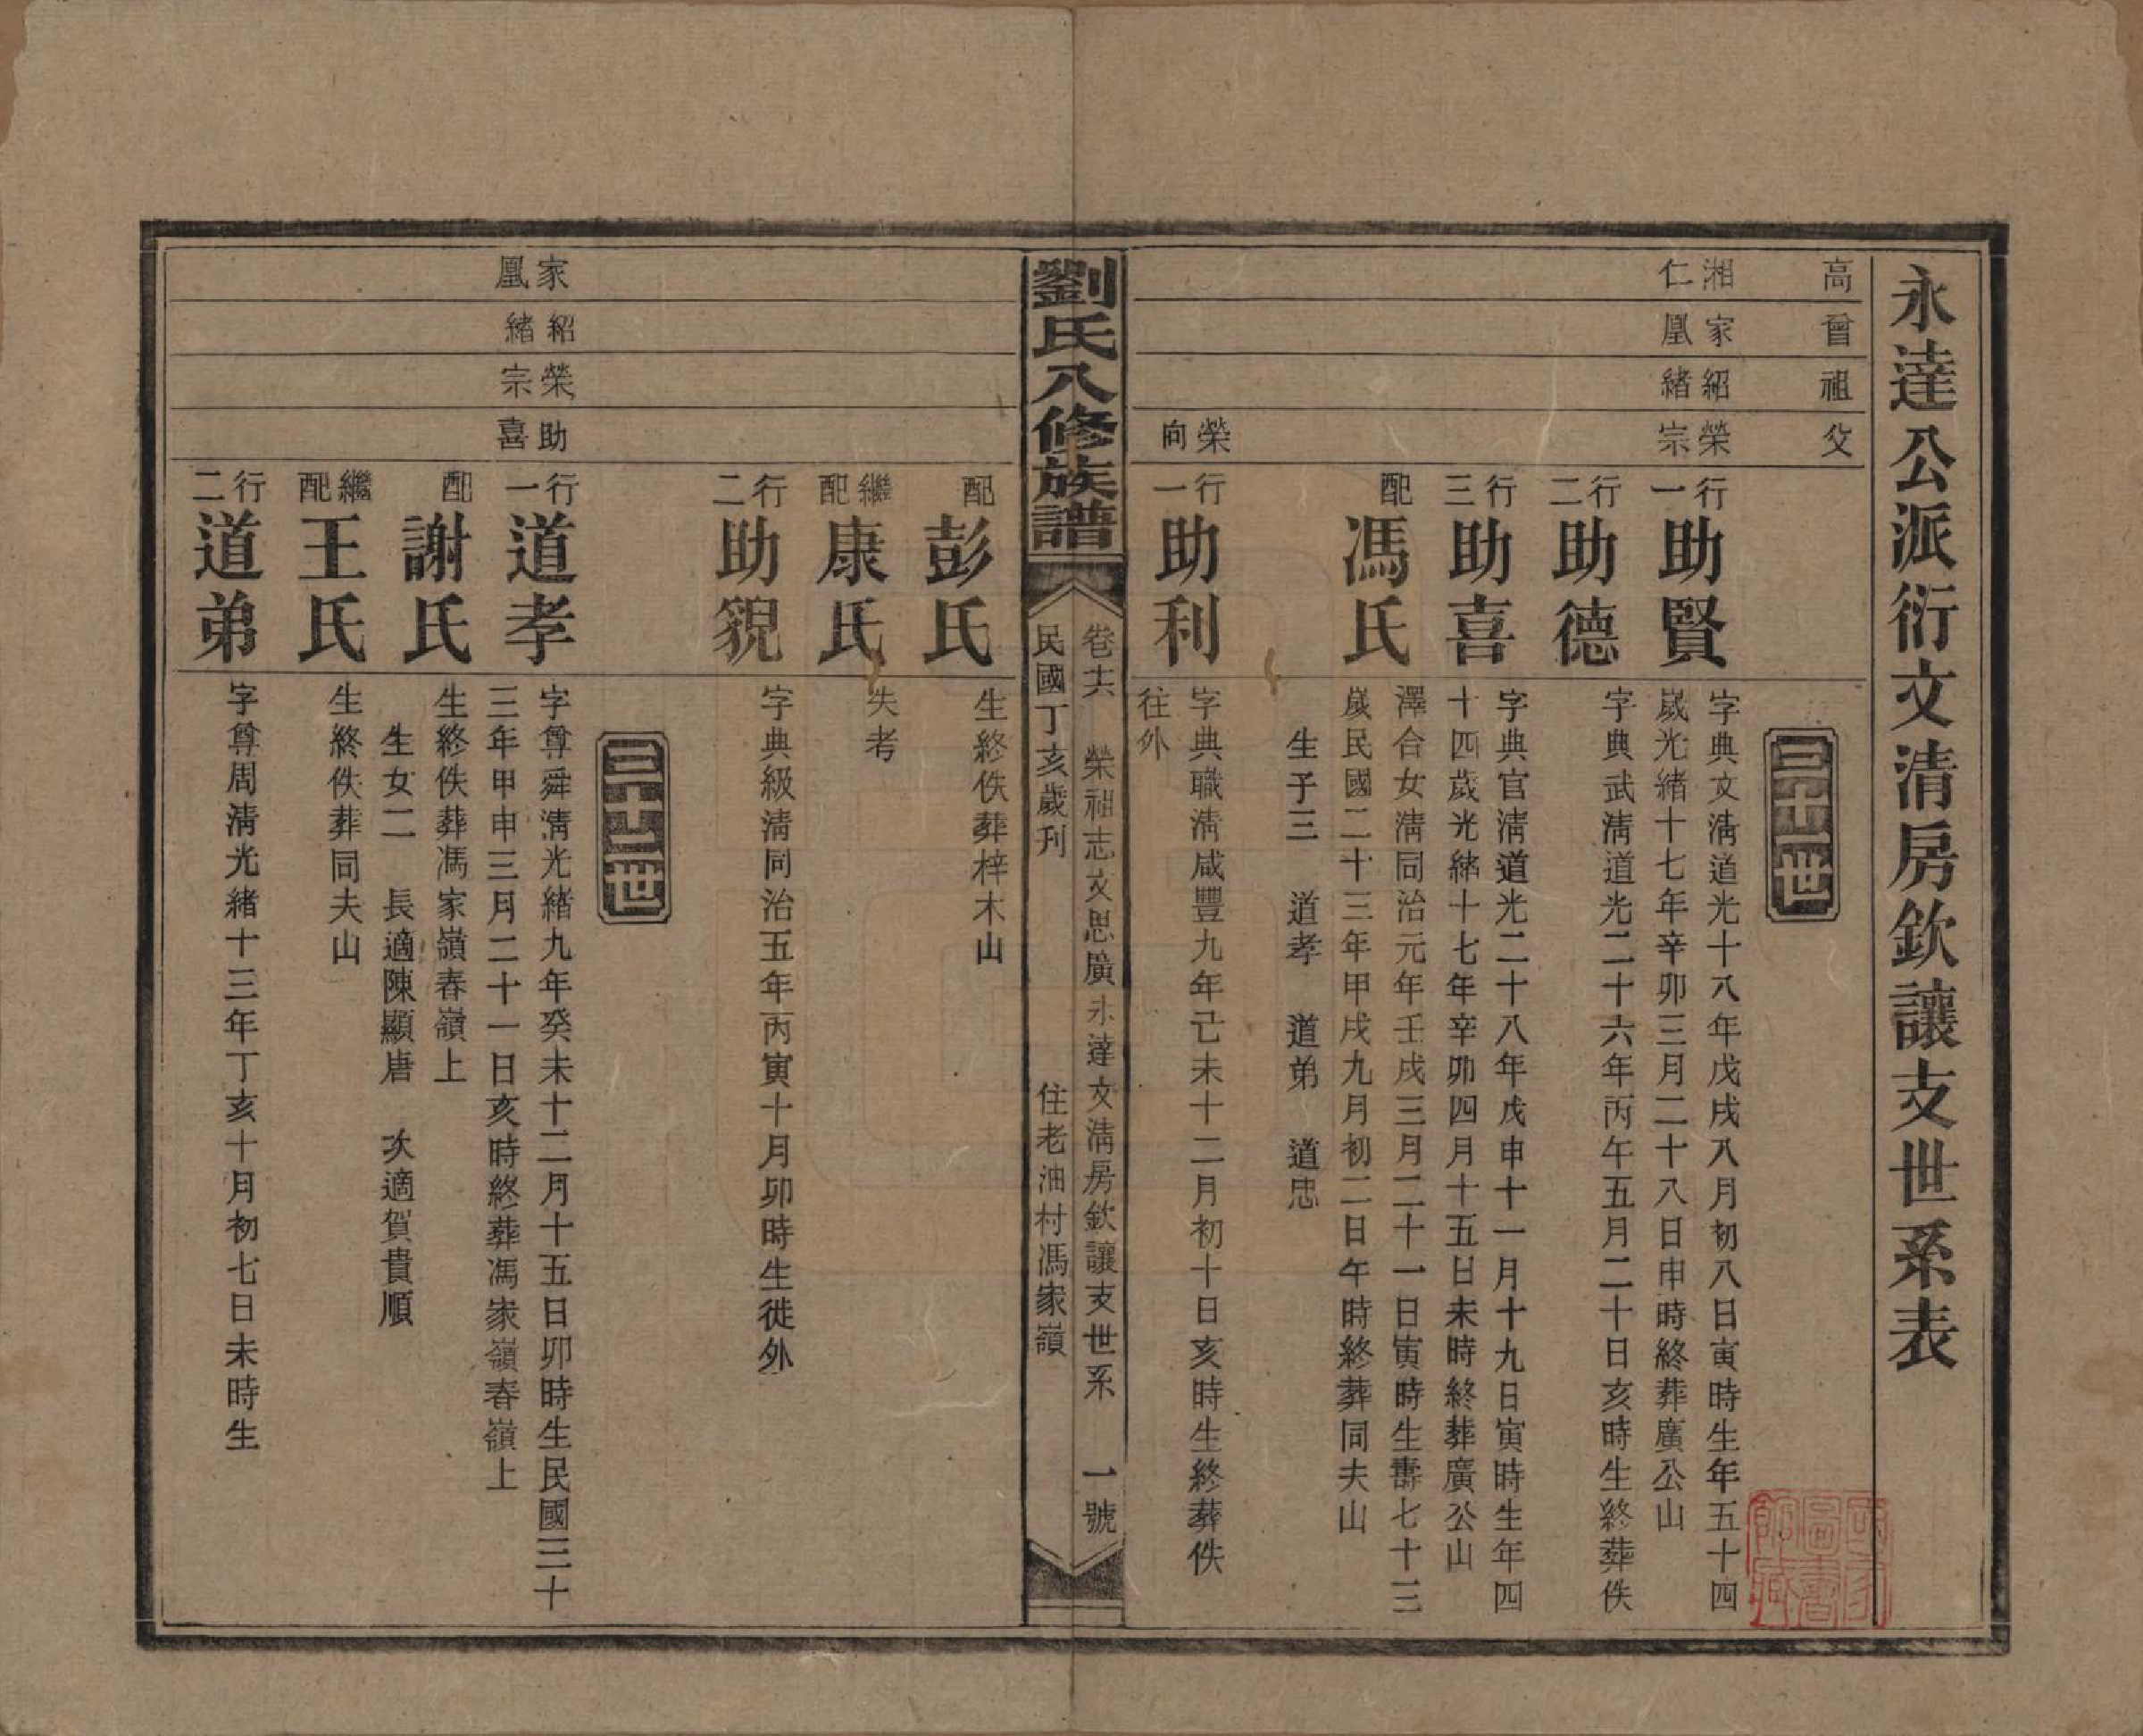 永達公派衍文清房欽讓支世系表
高
曾
祖
父
三十一世
湘仁
家凰
紹緒
榮宗
行一 助賢
字典文淸道光十八年戊戌八月初八日寅時生年五十四
歲光緒十七年辛卯三月二十八日申時終葬廣公山
行二 助德
字典武淸道光二十六年丙午五月二十日亥時生終葬佚
行三 助喜
字典官淸道光二十八年戊申十一月十九日寅時生年四
十四歲光緒十七年辛卯四月十五日未時終葬廣公山
配 馮氏
澤合女淸同治元年壬戌三月二十一日寅時生壽七十三
歲民國二十三年甲戌九月初二日午時終葬同夫山
生子三 道孝 道弟 道忠
榮向
行一 助利
字典職淸咸豐九年己未十二月初十日亥時生終葬佚
往外
劉氏八修族譜
卷十六 榮祖志友思廣永達文淸房欽讓支世系 一號
民國丁亥歲刋 住老油村馮家嶺
配 彭氏
生終佚葬梓木山
繼配 康氏
失考
行二 助貌
字典級淸同治五年丙寅十月卯時生徙外
三十二世
家凰
紹緒
榮宗
助喜
行一 道孝
字尊舜淸光緒九年癸未十二月十五日卯時生民國三十
三年甲申三月二十一日亥時終葬馮家嶺春嶺上
配 謝氏
生終佚葬馮家嶺春嶺上
生女二 長適陳顯唐 次適賀貴順
繼配 王氏
生終佚葬同夫山
行二 道弟
字尊周淸光緒十三年丁亥十月初七日未時生